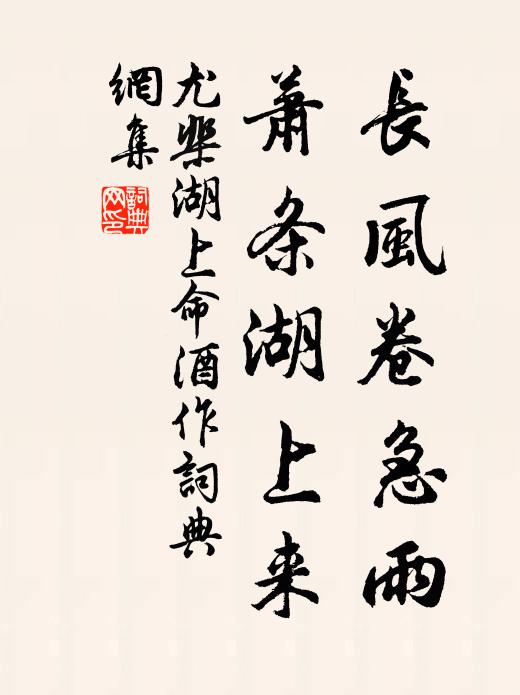 長風卷急雨
蕭条湖上来
尤槩湖上命酒作詞典
網集
詞典
网印